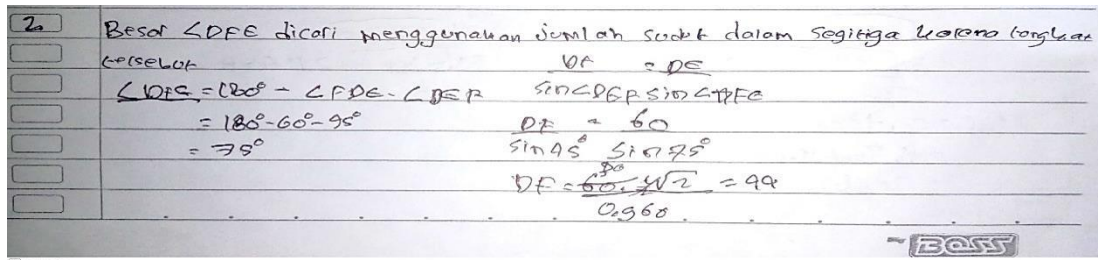 2. Besar ∠DFE dicari menggunakan jumlah sudut dalam segitiga karena langkah
tersebut
∠DFE = 180° - ∠FDE - ∠DEF
= 180° - 60° - 45°
= 75°
DF = DE
sin∠DEF sin∠DFE
DF = 60
sin 45° sin 75°
DF = 60. ½√2 = 44
30
0.960
BOSS